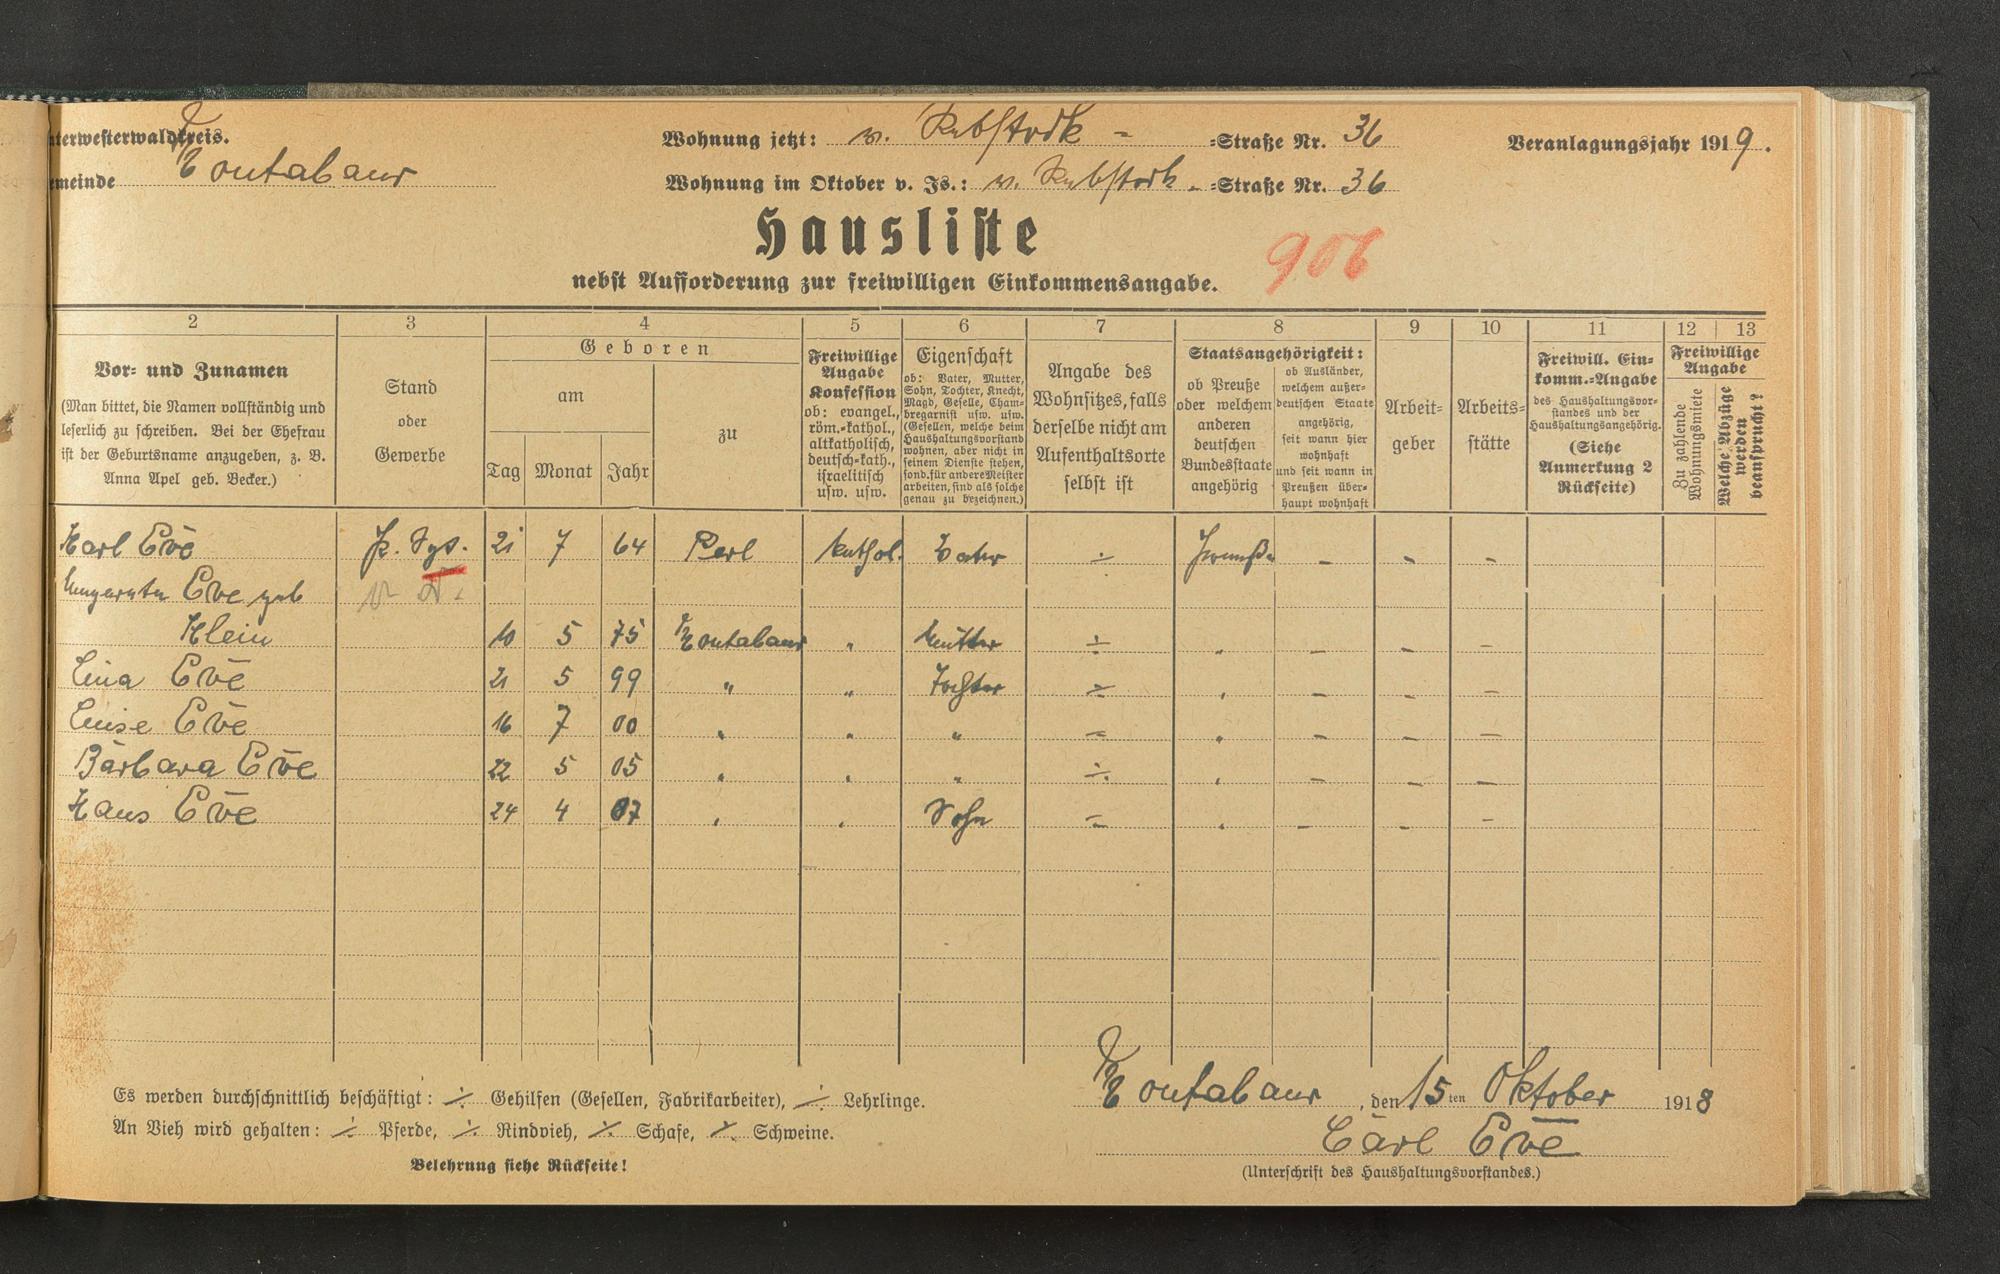 terwesterwaldkreis.
Wohnung jetzt: v. Rebstock - =Straße Nr. 36
Veranlagungsjahr 1919.
emeinde Montabaur
Wohnung im Oktober v. Js.: v. Rebstock - =Straße Nr. 36
Hausliste
906
nebst Aufforderung zur freiwilligen Einkommensangabe.
2 3 4 5 6 7 8 9 10 11 12 13
Vor- und Zunamen
(Man bittet, die Namen vollständig und
leserlich zu schreiben. Bei der Ehefrau
ist der Geburtsname anzugeben, z. B.
Anna Apel geb. Becker.)
Stand
oder
Gewerbe
Geboren
am
Tag Monat Jahr
zu
Freiwillige
Angabe
Konfession
ob: evangel.,
röm.-kathol.,
altkatholisch,
deutsch-kath.,
israelitisch
usw. usw.
Eigenschaft
ob: Vater, Mutter,
Sohn, Tochter, Knecht,
Magd, Geselle, Cham-
bregarnist usw. usw.
(Gesellen, welche beim
Haushaltungsvorstand
wohnen, aber nicht in
seinem Dienste stehen,
sond. für andere Meister
arbeiten, sind als solche
genau zu bezeichnen.)
Angabe des
Wohnsitzes, falls
derselbe nicht am
Aufenthaltsorte
selbst ist
Staatsangehörigkeit:
ob Preuße
oder welchem
anderen
deutschen
Bundesstaate
angehörig
ob Ausländer,
welchem außer-
deutschen Staate
angehörig,
seit wann hier
wohnhaft
und seit wann in
Preußen über-
haupt wohnhaft
Arbeit-
geber
Arbeits-
stätte
Freiwill. Ein-
komm.-Angabe
des Haushaltungsvor-
standes und der
Haushaltungsangehörig.
(Siehe
Anmerkung 2
Rückseite)
Freiwillige
Angabe
Zu zahlende
Wohnungsmiete
Welche Abzüge
werden
beansprucht?
Karl Evē 21 7 64 Perl kathol. Vater ÷ Preuße - - -
Margareta Eve geb
Klein 10 5 75 Montabaur " Mutter ÷ " - - -
Lina Evē 21 5 99 " " Tochter ÷ " - - -
Luise Evē 16 7 00 " " " ÷ " - - -
Barbara Evē 22 5 05 " " " ÷ " - - -
Hans Evē 24 4 07 " " Sohn ÷ " - - -
Es werden durchschnittlich beschäftigt: ÷ Gehilfen (Gesellen, Fabrikarbeiter), ÷ Lehrlinge.
An Vieh wird gehalten: ÷ Pferde, ÷ Rindvieh, ÷ Schafe, ÷ Schweine.
Belehrung siehe Rückseite!
Montabaur, den 15ten Oktober 1918
Carl Evē
(Unterschrift des Haushaltungsvorstandes.)